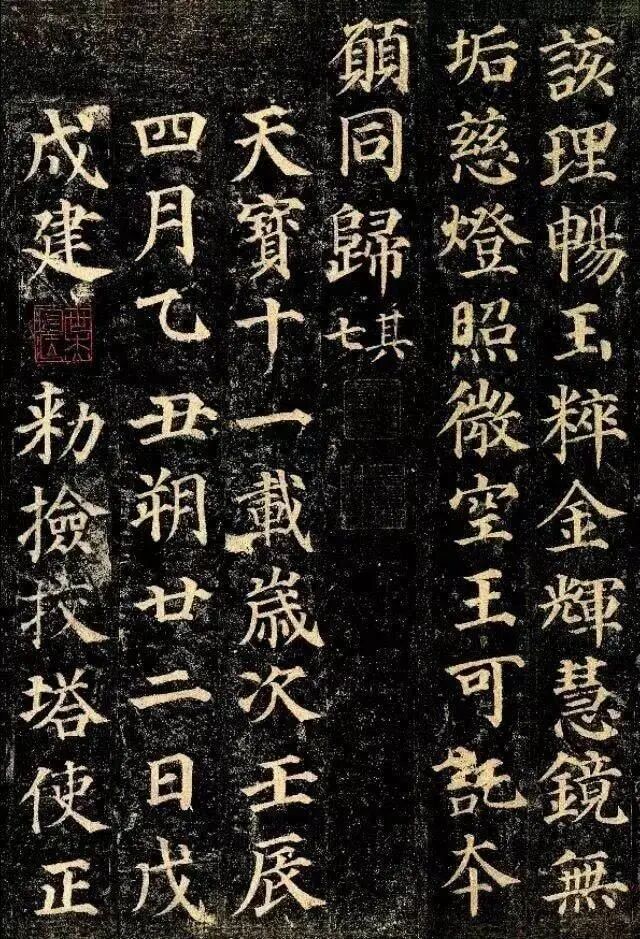 該理暢玉粹金輝慧鏡無
垢慈燈照微空王可託本
願同歸其七
天寶十一載歲次壬辰
四月乙丑朔廿二日戊
戌建 勑撿挍塔使正